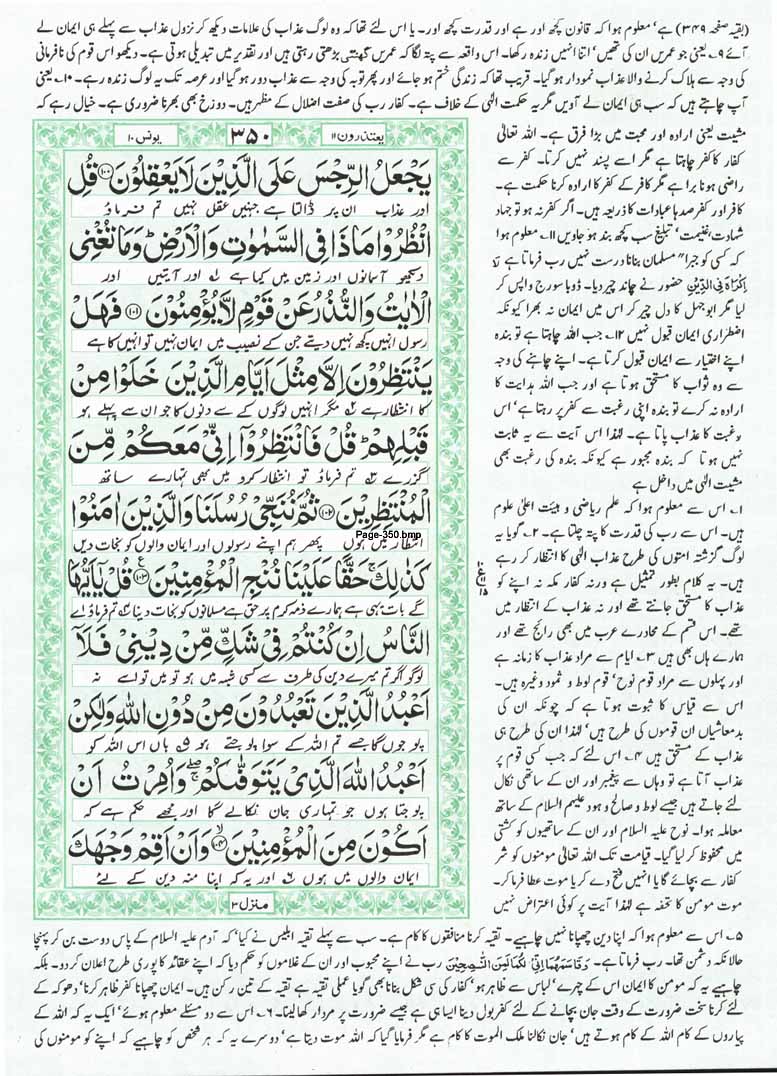 (بقیہ صفحہ ۳۴۹) ہے، معلوم ہوا کہ قانون کچھ اور ہے اور قدرت کچھ اور۔ یا اس لئے تھا کہ وہ لوگ عذاب کی علامات دیکھ کر نزول عذاب سے پہلے ہی ایمان لے
آئے ۹۔ یعنی جو عمریں ان کی تھیں، اتنا انہیں زندہ رکھا۔ اس واقعہ سے پتہ لگا کہ عمریں گھٹتی بڑھتی رہتی ہیں اور تقدیر میں تبدیلی ہوتی ہے۔ دیکھو اس قوم کی نافرمانی
کی وجہ سے ہلاک کرنے والا عذاب نمودار ہو گیا۔ قریب تھا کہ زندگی ختم ہو جائے اور پھر توبہ کی وجہ سے عذاب دور ہو گیا اور عرصہ تک یہ لوگ زندہ رہے۔ ۱۰۔ یعنی
آپ چاہتے ہیں کہ سب ہی ایمان لے آویں مگر یہ حکمت الٰہی کے خلاف ہے۔ کفار رب کی صفت اضلال کے مظہر ہیں۔ دوزخ بھی بھرنا ضروری ہے۔ خیال رہے کہ
مشیت یعنی ارادہ اور محبت میں بڑا فرق ہے۔ اللہ تعالیٰ
کفار کا کفر چاہتا ہے مگر اسے پسند نہیں کرتا۔ کفر سے
راضی ہونا برا ہے مگر کافر کے کفر کا ارادہ کرنا حکمت ہے۔
کافر اور کفر صدہا عبادات کا ذریعہ ہیں۔ اگر کفر نہ ہو تو جہاد
شہادت، غنیمت، تبلیغ سب کچھ بند ہو جاویں ۱۱۔ معلوم ہوا
کہ کسی کو جبراً مسلمان بنانا درست نہیں رب فرماتا ہے لَآ
اِكْرَاهَ فِي الدِّيْنِ حضور نے چاند چیر دیا۔ ڈوبا سورج واپس کر
لیا مگر ابوجہل کا دل چیر کر اس میں ایمان نہ بھرا کیونکہ
اضطراری ایمان قبول نہیں ۱۲۔ جب اللہ چاہتا ہے تو بندہ
اپنے اختیار سے ایمان قبول کرتا ہے۔ اپنے چاہنے کی وجہ
سے وہ ثواب کا مستحق ہوتا ہے اور جب اللہ ہدایت کا
ارادہ نہ کرے تو بندہ اپنی رغبت سے کفر پر رہتا ہے، اس
رغبت کا عذاب پاتا ہے۔ لہٰذا اس آیت سے یہ ثابت
نہیں ہوتا کہ بندہ مجبور ہے کیونکہ بندہ کی رغبت بھی
مشیت الٰہی میں داخل ہے
۱۔ اس سے معلوم ہوا کہ علم ریاضی و ہیئت اعلیٰ علوم
ہیں۔ اس سے رب کی قدرت کا پتہ چلتا ہے۔ ۲۔ گویا یہ
لوگ گزشتہ امتوں کی طرح عذاب الٰہی کا انتظار کر رہے
ہیں۔ یہ کلام بطور تمثیل ہے ورنہ کفار مکہ نہ اپنے کو
عذاب کا مستحق جانتے تھے اور نہ عذاب کے انتظار میں
تھے۔ اس قسم کے محاورے عرب میں بھی رائج تھے اور
ہمارے ہاں بھی ہیں ۳۔ ایام سے مراد عذاب کا زمانہ ہے
اور پہلوں سے مراد قوم نوح، قوم لوط و ثمود وغیرہ ہیں۔
اس سے قیاس کا ثبوت ہوتا ہے کہ چونکہ ان کی
بدمعاشیاں ان قوموں کی طرح ہیں، لہٰذا ان کی طرح ہی
عذاب کے مستحق ہیں ۴۔ اس لئے کہ جب کسی قوم پر
عذاب آتا ہے تو وہاں سے پیغمبر اور ان کے ساتھی نکال
لئے جاتے ہیں جیسے لوط و صالح و ہود علیہم السلام کے ساتھ
معاملہ ہوا۔ نوح علیہ السلام اور ان کے ساتھیوں کو کشتی
میں محفوظ کر لیا گیا۔ قیامت تک اللہ تعالیٰ مومنوں کو شر
کفار سے بچائے گا یا انہیں فتح دے کر یا موت عطا فرما کر۔
موت مومن کا تحفہ ہے لہٰذا آیت پر کوئی اعتراض نہیں
یعتذرون ۱۱
۳۵۰
یونس ۱۰
يَجْعَلُ الرِّجْسَ عَلَى الَّذِيْنَ لَا يَعْقِلُوْنَ ﴿۱۰۰﴾ قُلِ
اور عذاب ان پر ڈالتا ہے جنہیں عقل نہیں تم فرماؤ
انْظُرُوْا مَاذَا فِي السَّمٰوٰتِ وَالْاَرْضِ ؕ وَمَا تُغْنِي
دیکھو آسمانوں اور زمین میں کیا ہے اور آیتیں اور
الْاٰيٰتُ وَالنُّذُرُ عَنْ قَوْمٍ لَّا يُؤْمِنُوْنَ ﴿۱۰۱﴾ فَهَلْ
رسول انہیں کچھ نہیں دیتے جن کے نصیب میں ایمان نہیں تو انہیں کاہے
يَنْتَظِرُوْنَ اِلَّا مِثْلَ اَيَّامِ الَّذِيْنَ خَلَوْا مِنْ
کا انتظار ہے مگر انہیں لوگوں کے سے دنوں کا جو ان سے پہلے ہو
قَبْلِهِمْ ؕ قُلْ فَانْتَظِرُوْٓا اِنِّيْ مَعَكُمْ مِّنَ
گزرے تم فرماؤ تو انتظار کرو میں بھی تمہارے ساتھ
الْمُنْتَظِرِيْنَ ﴿۱۰۲﴾ ثُمَّ نُنَجِّيْ رُسُلَنَا وَالَّذِيْنَ اٰمَنُوْا
Page-350.bmp
انتظار میں ہوں پھر ہم اپنے رسولوں اور ایمان والوں کو نجات دیں
كَذٰلِكَ ۚ حَقًّا عَلَيْنَا نُنْجِ الْمُؤْمِنِيْنَ ﴿۱۰۳﴾ قُلْ يٰٓاَيُّهَا
گے بات یہی ہے ہمارے ذمہ کرم پر حق ہے مسلمانوں کو نجات دینا تم فرماؤ اے
النَّاسُ اِنْ كُنْتُمْ فِيْ شَكٍّ مِّنْ دِيْنِيْ فَلَآ
لوگو اگر تم میرے دین کی طرف سے کسی شبہ میں ہو تو میں تو اسے نہ
اَعْبُدُ الَّذِيْنَ تَعْبُدُوْنَ مِنْ دُوْنِ اللّٰهِ وَلٰكِنْ
پوجوں گا جسے تم اللہ کے سوا پوجتے ہو ہاں اس اللہ کو
اَعْبُدُ اللّٰهَ الَّذِيْ يَتَوَفّٰىكُمْ ۚ وَاُمِرْتُ اَنْ
پوجتا ہوں جو تمہاری جان نکالے گا اور مجھے حکم ہے کہ
اَكُوْنَ مِنَ الْمُؤْمِنِيْنَ ﴿۱۰۴﴾ وَاَنْ اَقِمْ وَجْهَكَ
ایمان والوں میں ہوں اور یہ کہ اپنا منہ دین کے لئے
منزل ۳
۵۔ اس سے معلوم ہوا کہ اپنا دین چھپانا نہیں چاہیے۔ تقیہ کرنا منافقوں کا کام ہے۔ سب سے پہلے تقیہ ابلیس نے کیا، کہ آدم علیہ السلام کے پاس دوست بن کر پہنچا
حالانکہ دشمن تھا۔ رب فرماتا ہے۔ وَقَاسَمَهُمَآ اِنِّيْ لَكُمَا لَمِنَ النّٰصِحِيْنَ رب نے اپنے محبوب اور ان کے غلاموں کو حکم دیا کہ اپنے عقائد کا پوری طرح اعلان کر دو۔ بلکہ
چاہیے یہ کہ مومن کا ایمان اس کے چہرے، لباس سے ظاہر ہو، کفار کی سی شکل بنانا بھی گویا عملی تقیہ ہے تقیہ کے تین رکن ہیں۔ ایمان چھپانا کفر ظاہر کرنا، دھوکہ کے
لئے کرنا سخت ضرورت کے وقت جان بچانے کے لئے کفر بول دینا ایسا ہی ہے جیسے ضرورت پر مردار کھا لینا۔ ۶۔ اس سے دو مسئلے معلوم ہوئے، ایک یہ کہ اللہ کے
پیاروں کے کام اللہ کے کام ہوتے ہیں، جان نکالنا ملک الموت کا کام ہے مگر فرمایا گیا کہ اللہ موت دیتا ہے، دوسرے یہ کہ ہر شخص کو چاہیے کہ اپنے کو مومنوں کی